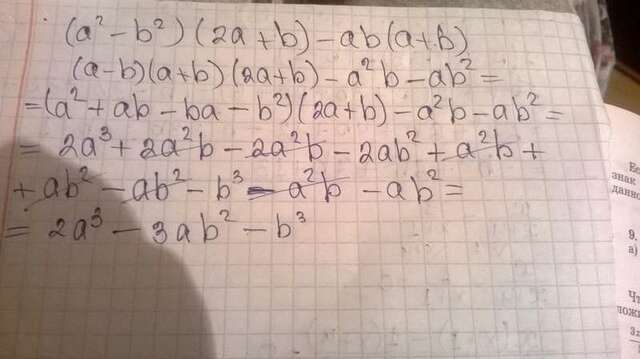 (a² - b²)(2a + b) - ab(a + b)
(a - b)(a + b)(2a + b) - a²b - ab² =
= (a² + ab - ba - b²)(2a + b) - a²b - ab² =
= 2a³ + 2a²b - 2a²b - 2ab² + a²b +
+ ab² - ab² - b³ - a²b - ab² =
= 2a³ - 3ab² - b³
знак
данно
9.
а)